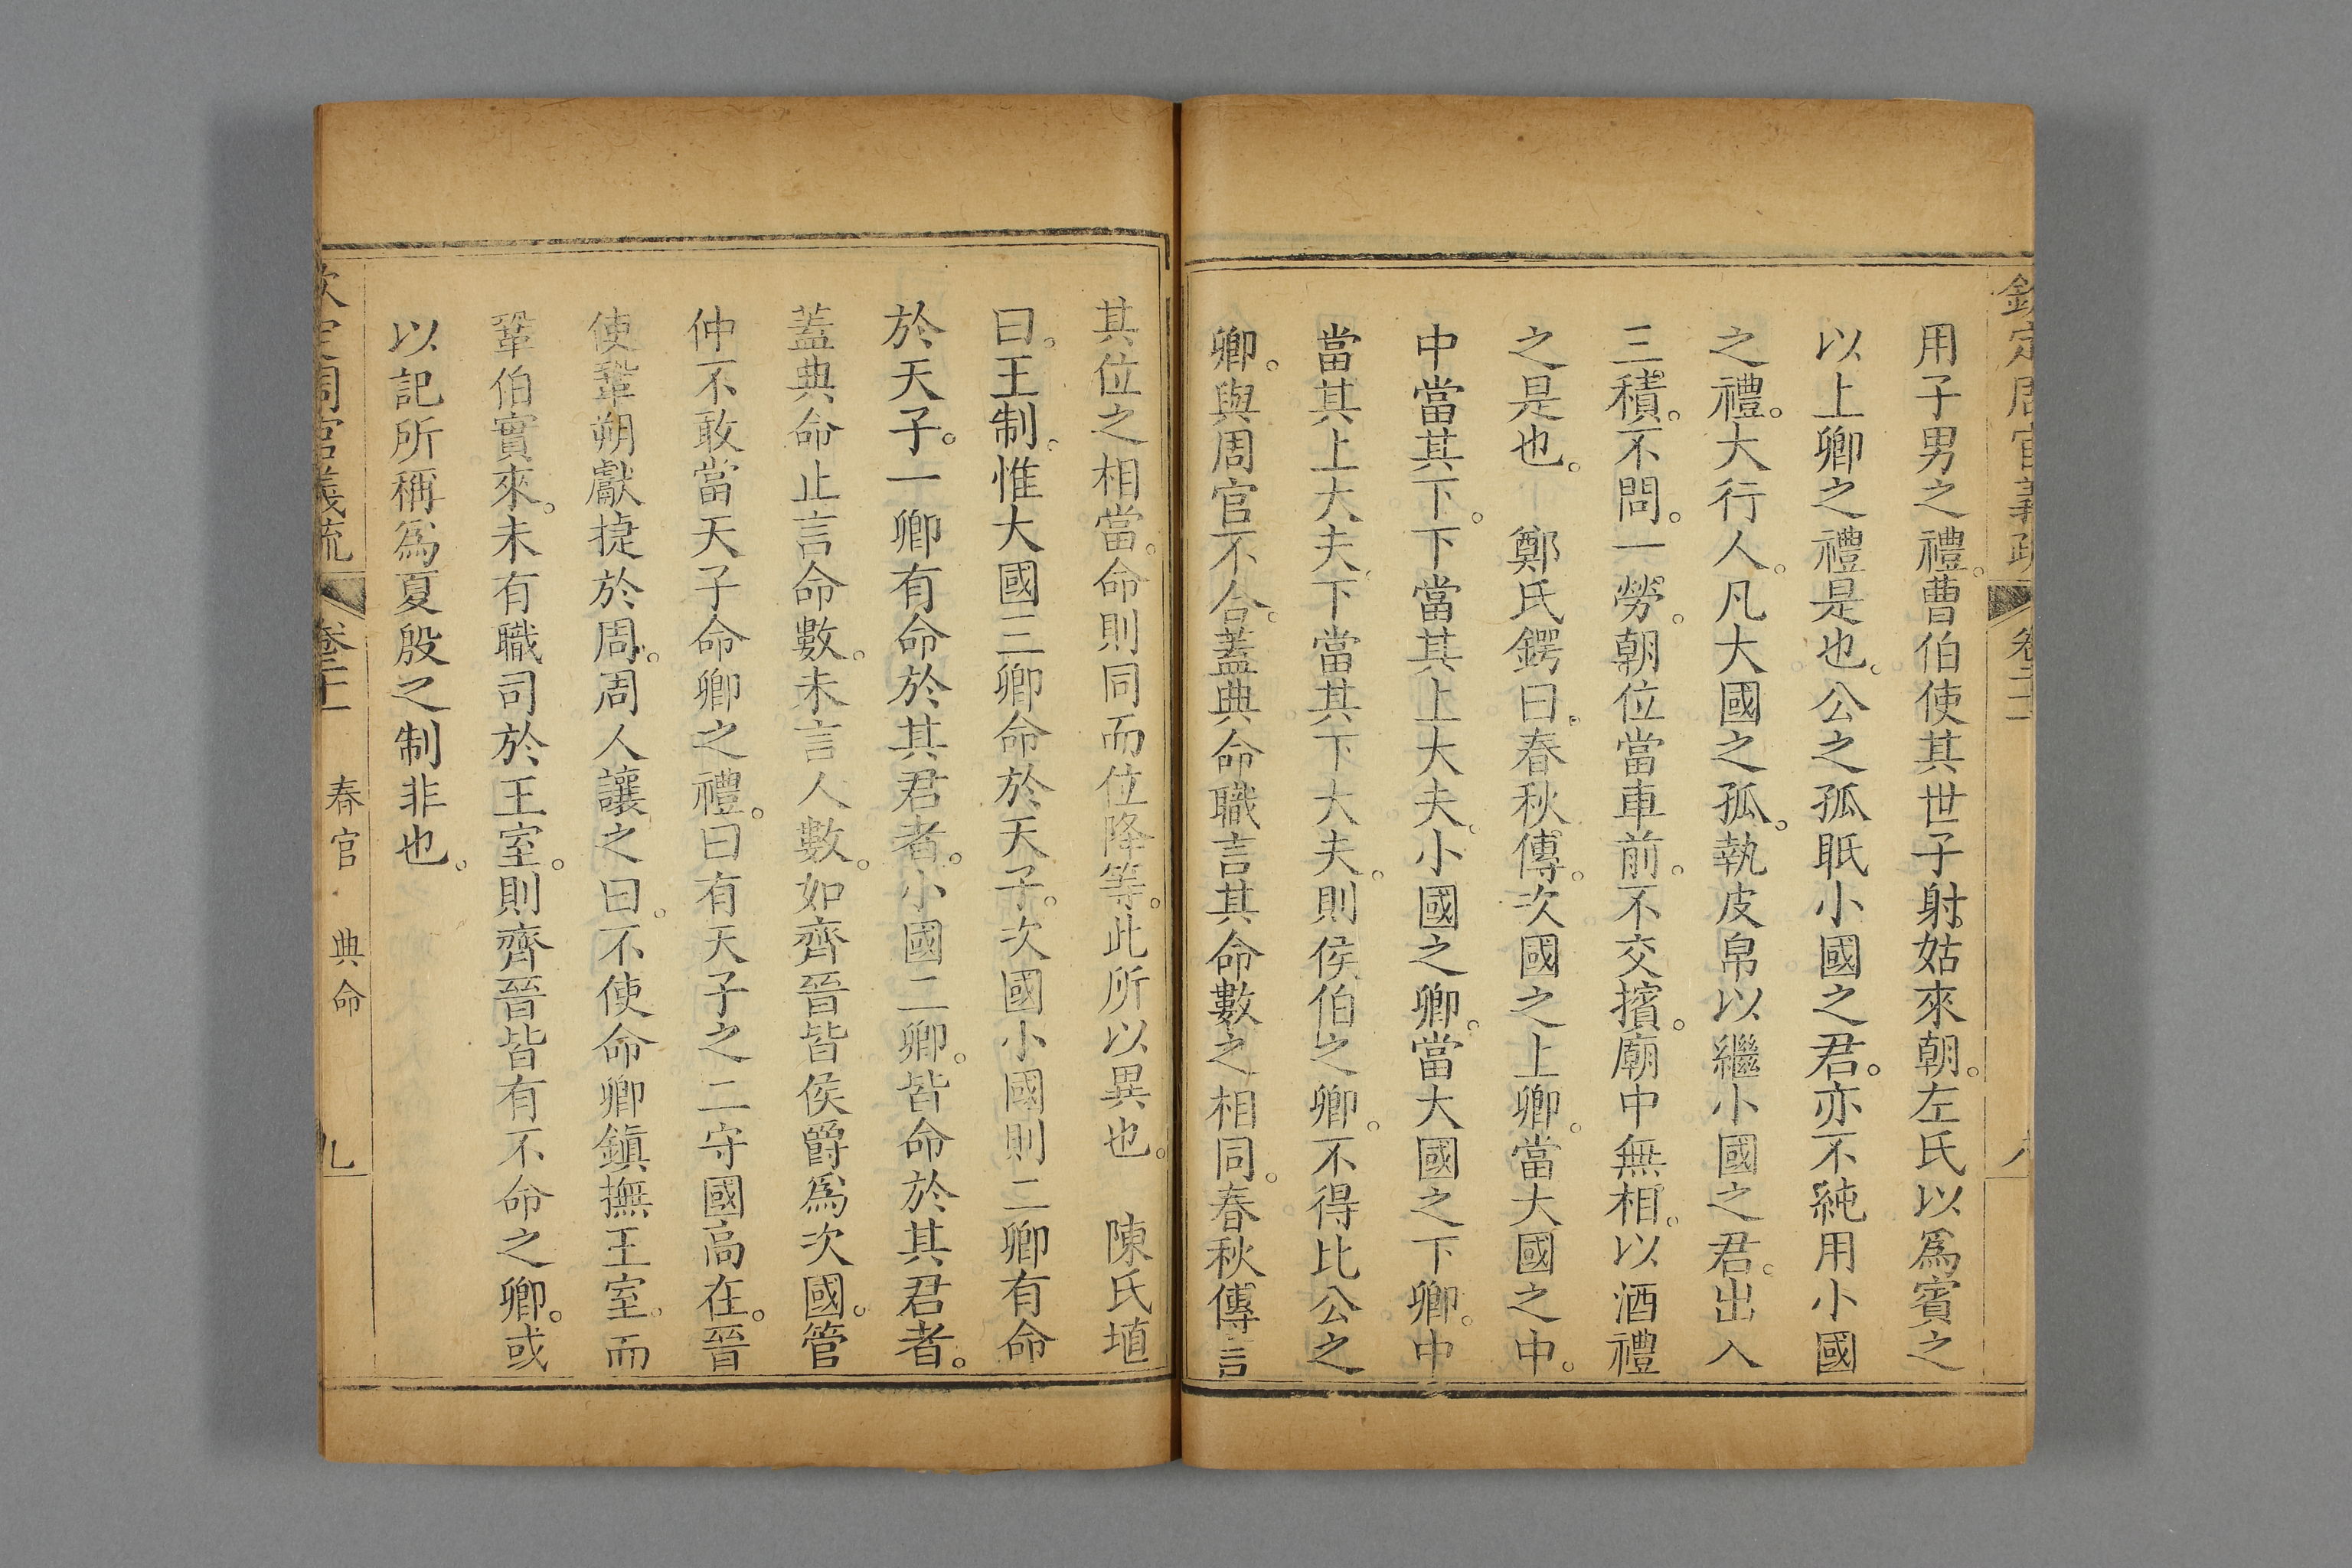 欽定周官義疏 卷二十一 八
用子男之禮。曹伯使其世子射姑來朝。左氏以爲賓之
以上卿之禮是也。公之孤眡小國之君。亦不純用小國
之禮。大行人。凡大國之孤。執皮帛以繼小國之君。出入
三積。不問。一勞。朝位當車前。不交擯。廟中無相。以酒禮
之是也。 鄭氏鍔曰。春秋傳。次國之上卿。當大國之中。
中當其下。下當其上大夫。小國之卿。當大國之下卿。中
當其上大夫。下當其下大夫。則侯伯之卿。不得比公之
卿。與周官不合。蓋典命職言其命數之相同。春秋傳言
其位之相當。命則同而位降等。此所以異也。 陳氏埴
曰。王制。惟大國三卿命於天子。次國小國則二卿有命
於天子。一卿有命於其君者。小國二卿。皆命於其君者。
蓋典命止言命數。未言人數。如齊晉皆侯爵爲次國。管
仲不敢當天子命卿之禮。曰有天子之二守國高在。晉
使鞏朔獻捷於周。周人讓之曰。不使命卿鎮撫王室。而
鞏伯實來。未有職司於王室。則齊晉皆有不命之卿。或
以記所稱爲夏殷之制非也。
欽定周官義疏 卷二十一 春官 典命 九